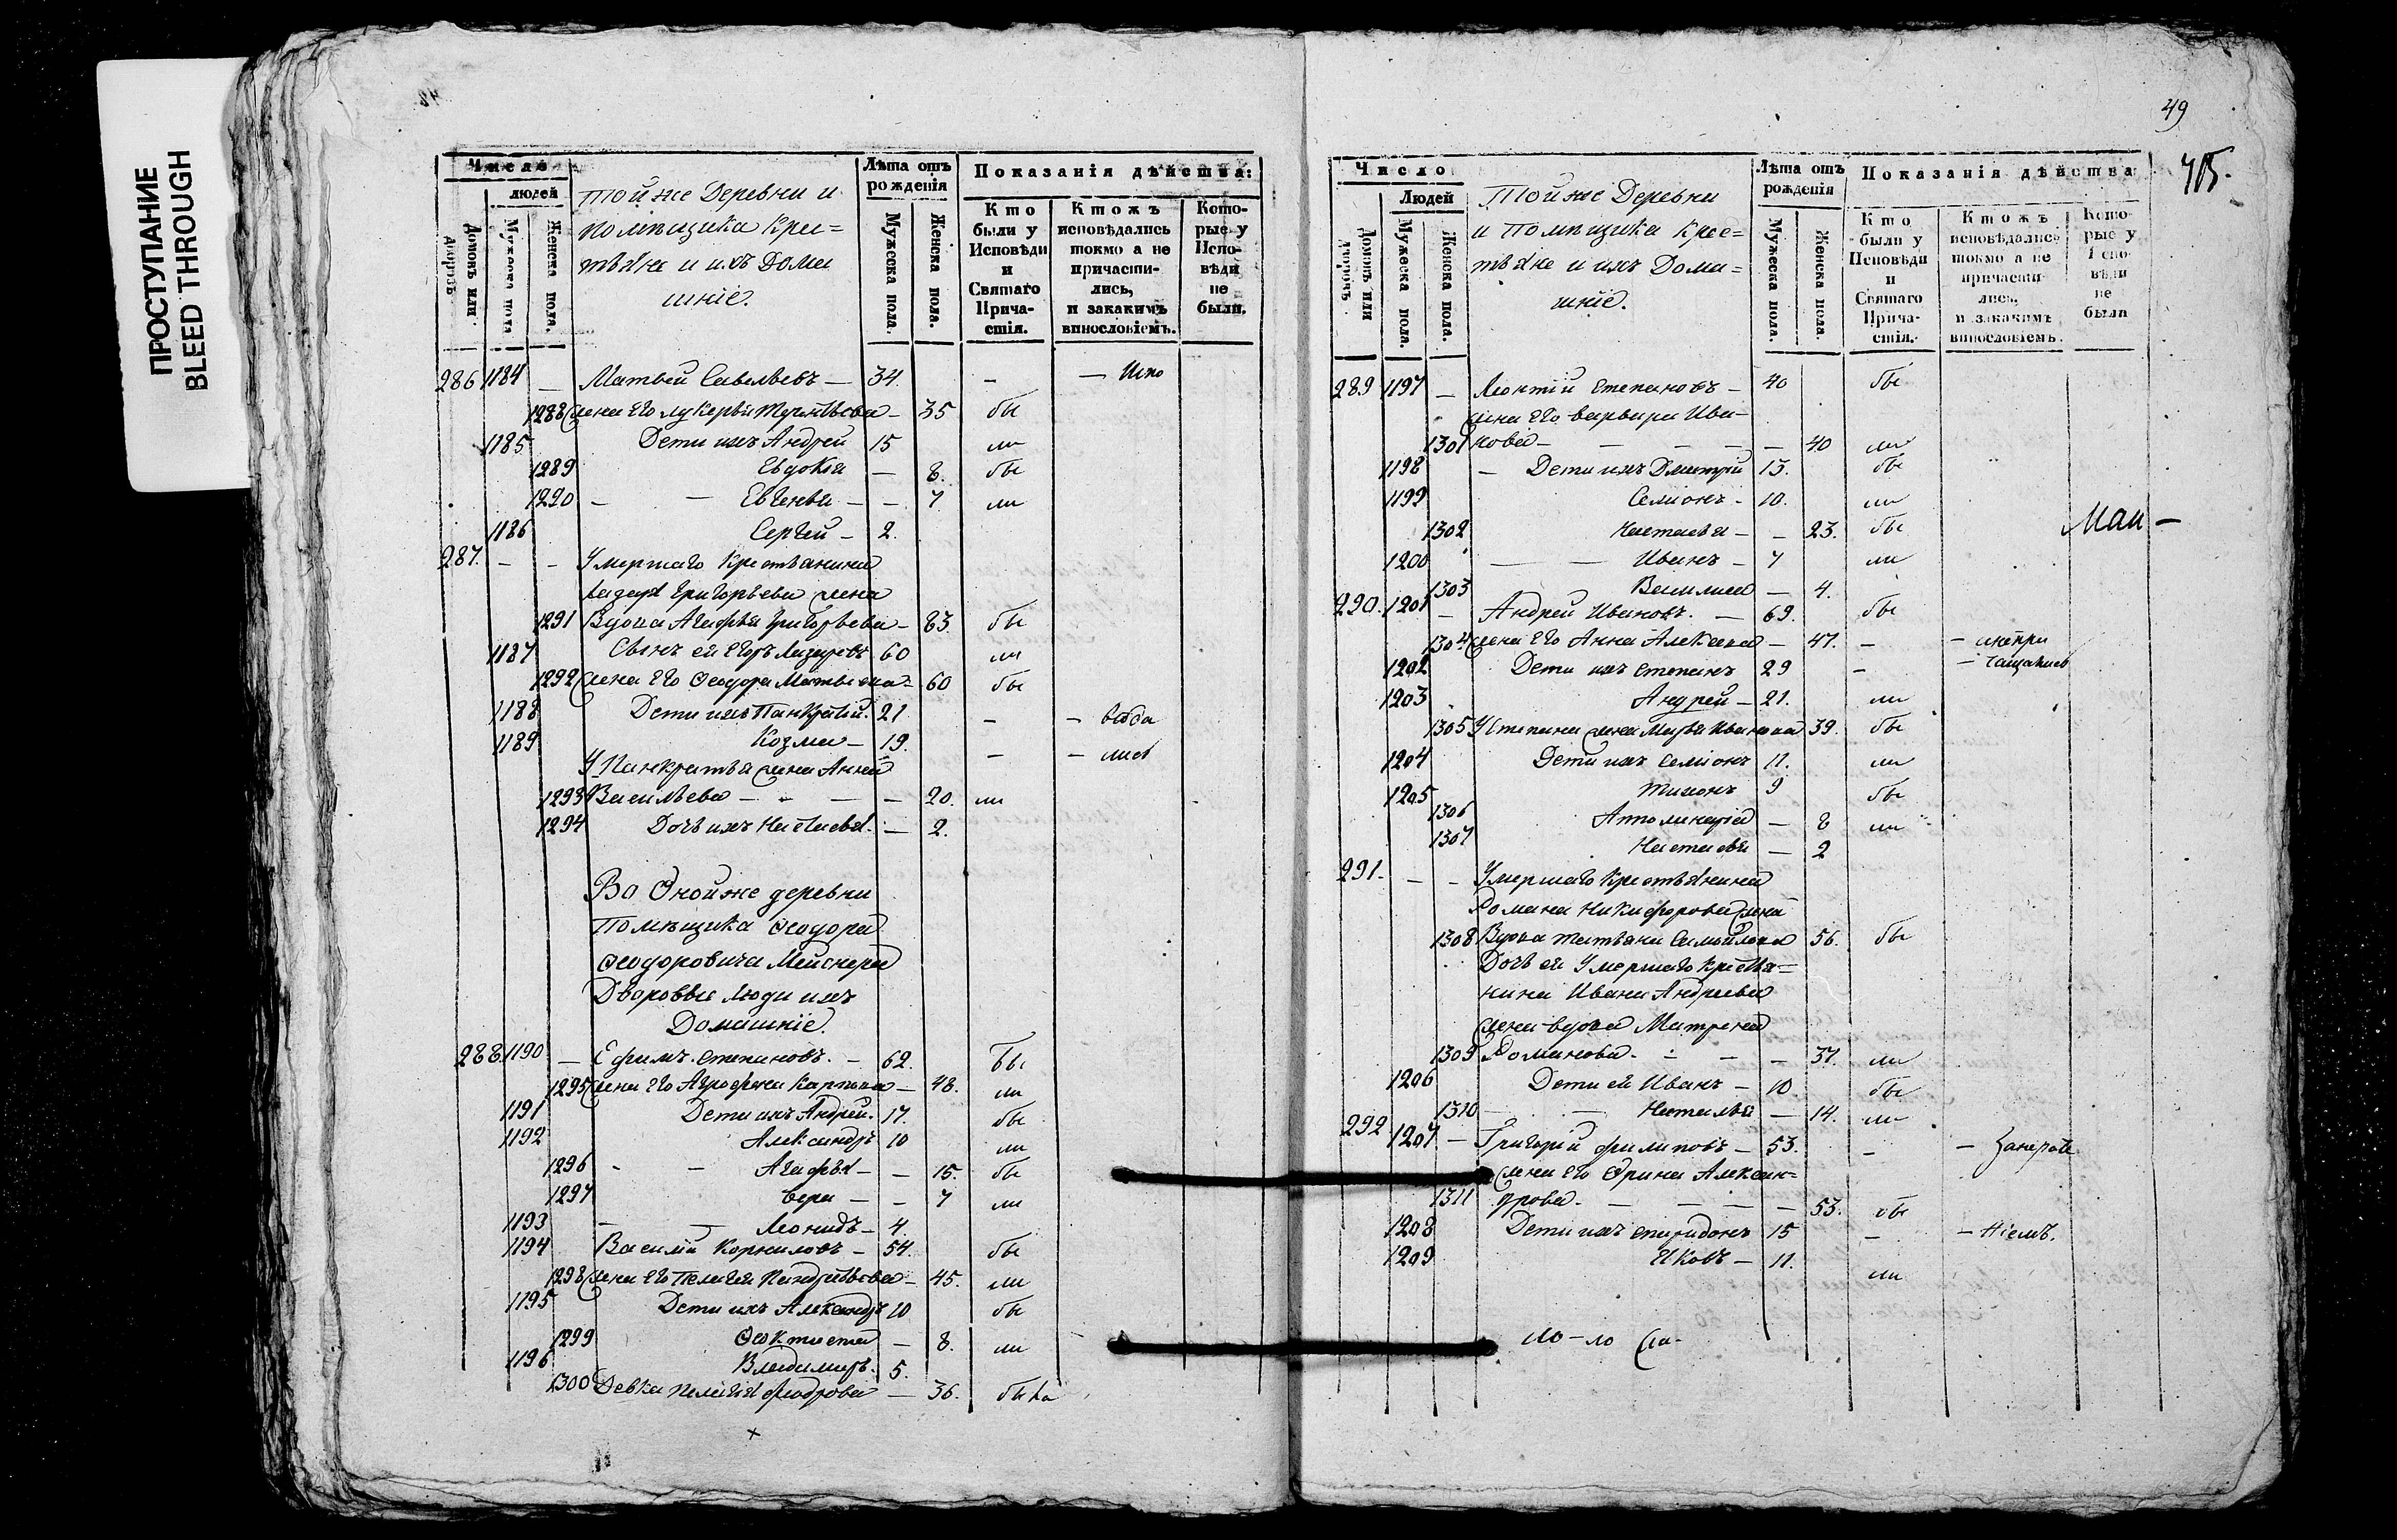 ПРОСТУПАНИЕ
BLEED THROUGH
Число
людей
Домовъ или дворовъ
Мужеска пола.
Женска пола.
Тойже Деревни и
помѣщика Крес=
тьяне и ихъ Дома
шніе.
Лѣта отъ рожденія
Мужеска пола.
Женска пола.
Показанія дѣйства:
Кто были у Исповѣди и Святаго Прича-стія.
Ктожъ исповѣдались токмо а не причасти-лись, и закакимъ винословіемъ.
Кото-рые у Испо-вѣди не были.
286 1184 — Матвей Савельевъ — 34. — — Испо
1288 жена Его Лукерья — 35 бы
1185 Дети ихъ Андрей 15 ли
1289 Евдокія — 8. бы
1290 — — Евгенья — — 7 ли
1186 Сергей — 2.
287. — — Умершаго Крестьянина
Лазаря Григорьева жена
1291 Вдова Агафья Григорьева — 83. бы
1187 Сынъ ея Егоръ Лазаревъ 60 ли
1292 жена Его Ѳеодора Матвеева — 60 бы
1188 Дети ихъ Панкратій. 21 — — веда
1189 Козма — 19. — — лись
У Панкратья жена Анна
1293 Васильева — — — — 20. ли
1294 Дочь ихъ Настасья. — 2.
Во Оной же деревни
Помѣщика Ѳеодора
Ѳеодоровича Мейснера
Дворовые люди ихъ
Домашніе.
288. 1190 — Ефимъ Степановъ. — 62. бы
1295 жена Его Агрофена Карпова — 48. ли
1191 Дети ихъ Андрей. 17. бы
1192 Александръ 10 ли
1296 — — Агафья — — 15. бы
1297 Вера — — 7 ли
1193 — — Леонидъ — 4.
1194 Василій Корниловъ — 54. бы
1298 жена Его Пелагея — 45. ли
1195 Дети ихъ Александръ 10 бы
1299 Ѳеоктиста — 8. ли
1196 Владимиръ. 5.
1300 Девка Пелагея Федорова — 36. была
49
415.
Число
Людей
Домовъ или дворовъ
Мужеска пола.
Женска пола.
Тойже Деревни
и Помѣщика Крес=
тьяне и ихъ Дома=
шніе.
Лѣта отъ рожденія
Мужеска пола.
Женска пола.
Показанія дѣйства
Кто были у Исповѣди и Святаго Прича-стія.
Ктожъ исповѣдались токмо а не причасти-лись, и закакимъ винословіемъ.
Кото-рые у Испо-вѣди не были
289 1197 — Леонтій Степановъ — 40 бы
жена Его Варвара Ива-
1301 нова — — — — — 40 ли
1198 — Дети ихъ Дмитрій 13. бы
1199 Семіонъ — 10. ли
1302 Настасья — — 23. бы
1200 — — Иванъ — 7 ли
1303 Василиса — 4.
290. 1201 — Андрей Ивановъ. — 69. бы
1304 жена Его Анна Алексева — 47. — — анепри
1202 Дети ихъ Степанъ 29 — — чащались
1203 Андрей — 21. ли
1305 У Степана жена Марья Иванова 39. бы
1204 Дети ихъ Семіонъ 11. ли
1205 Тихонъ 9 бы
1306 Апполинарія — 8 ли
1307 Настасья — 2
291. — — Умершаго Крестьянина
Романа Никифорова жена
1308 Вдова Татьяна Самойлова 56. бы
Дочь ея Умершаго Крестья=
нина Ивана Андреева
жена вдова Матрена
1309 Романова. — — — 37. ли
1206 Дети ея Иванъ — 10. бы
1310 — — Наталья — 14. ли
292 1207 — Григорій Филиповъ — 53. — — Занерас
жена Его Ирина Алексан=
1311 дрова. — — — — 53. бы
1208 Дети ихъ Спиридонъ 15 — — ніемъ.
1209 Яковъ — 11. ли